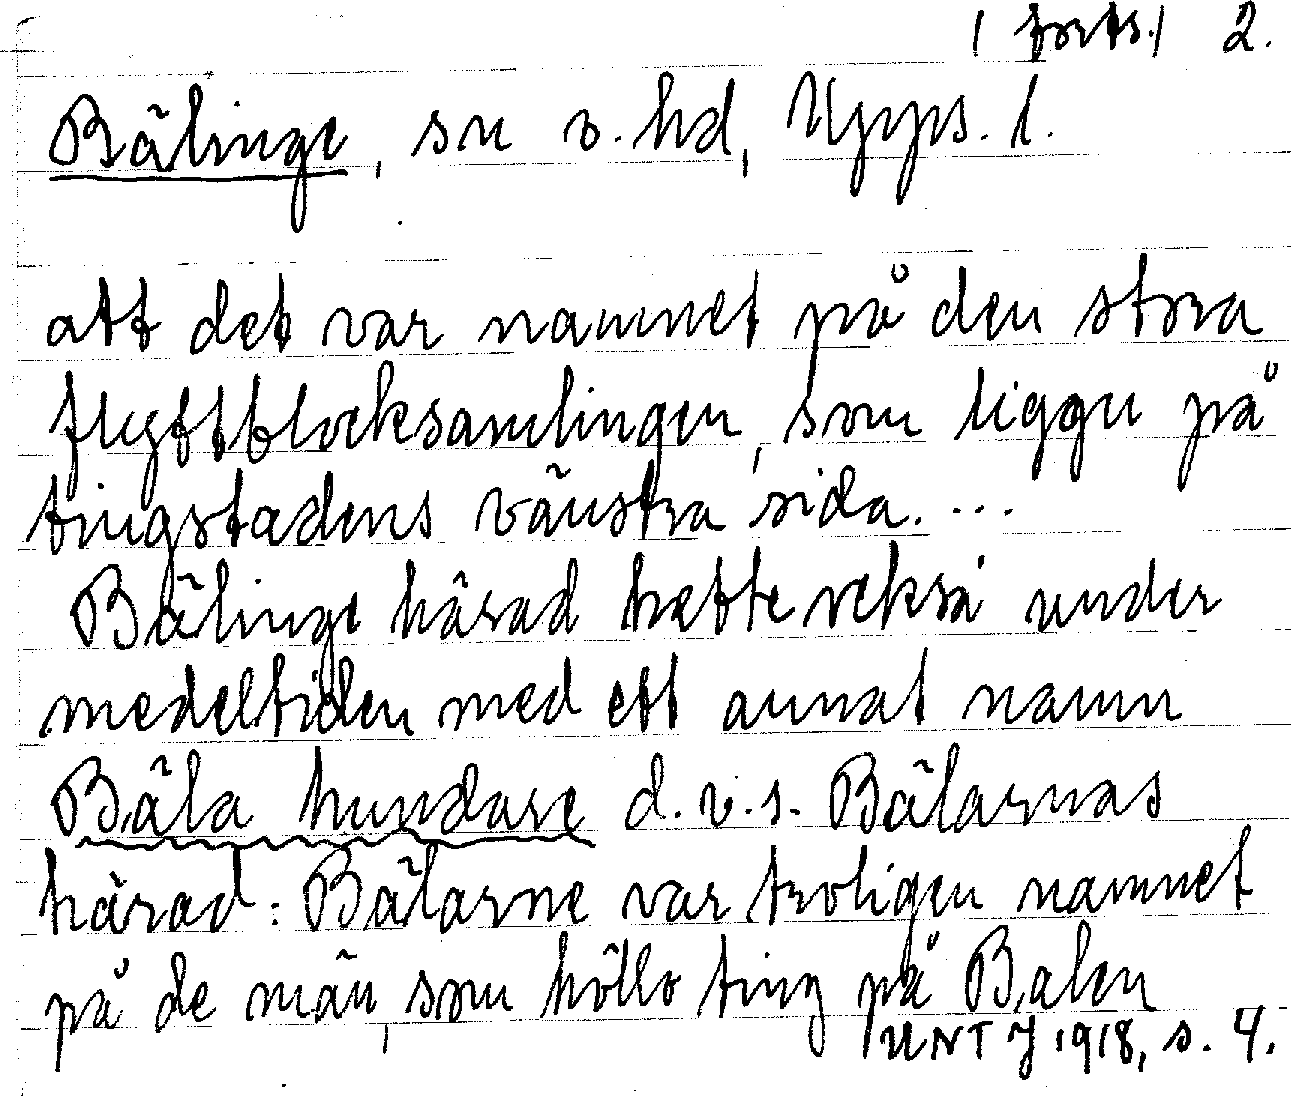 (forts.) 2.
Bälinge, sn o. hd, Upps. l.
att det var namnet på den stora
flyttblocksamlingen, som ligger på
tingstadens vänstra sida. ...
Bälinge härad hette också under
medeltiden med ett annat namn
Bäla hundare d.v.s. Bälarnas
härad: Bälarne var troligen namnet
på de män, som höllo ting på Balen
UNT J 1918, s. 4.